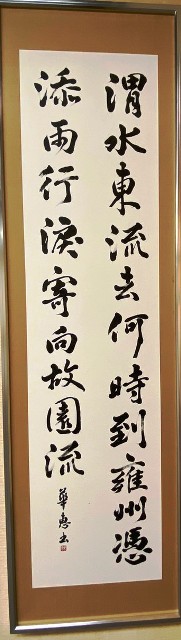 渭水東流去何時到雍州憑
添両行淚寄向故園流
華恵書